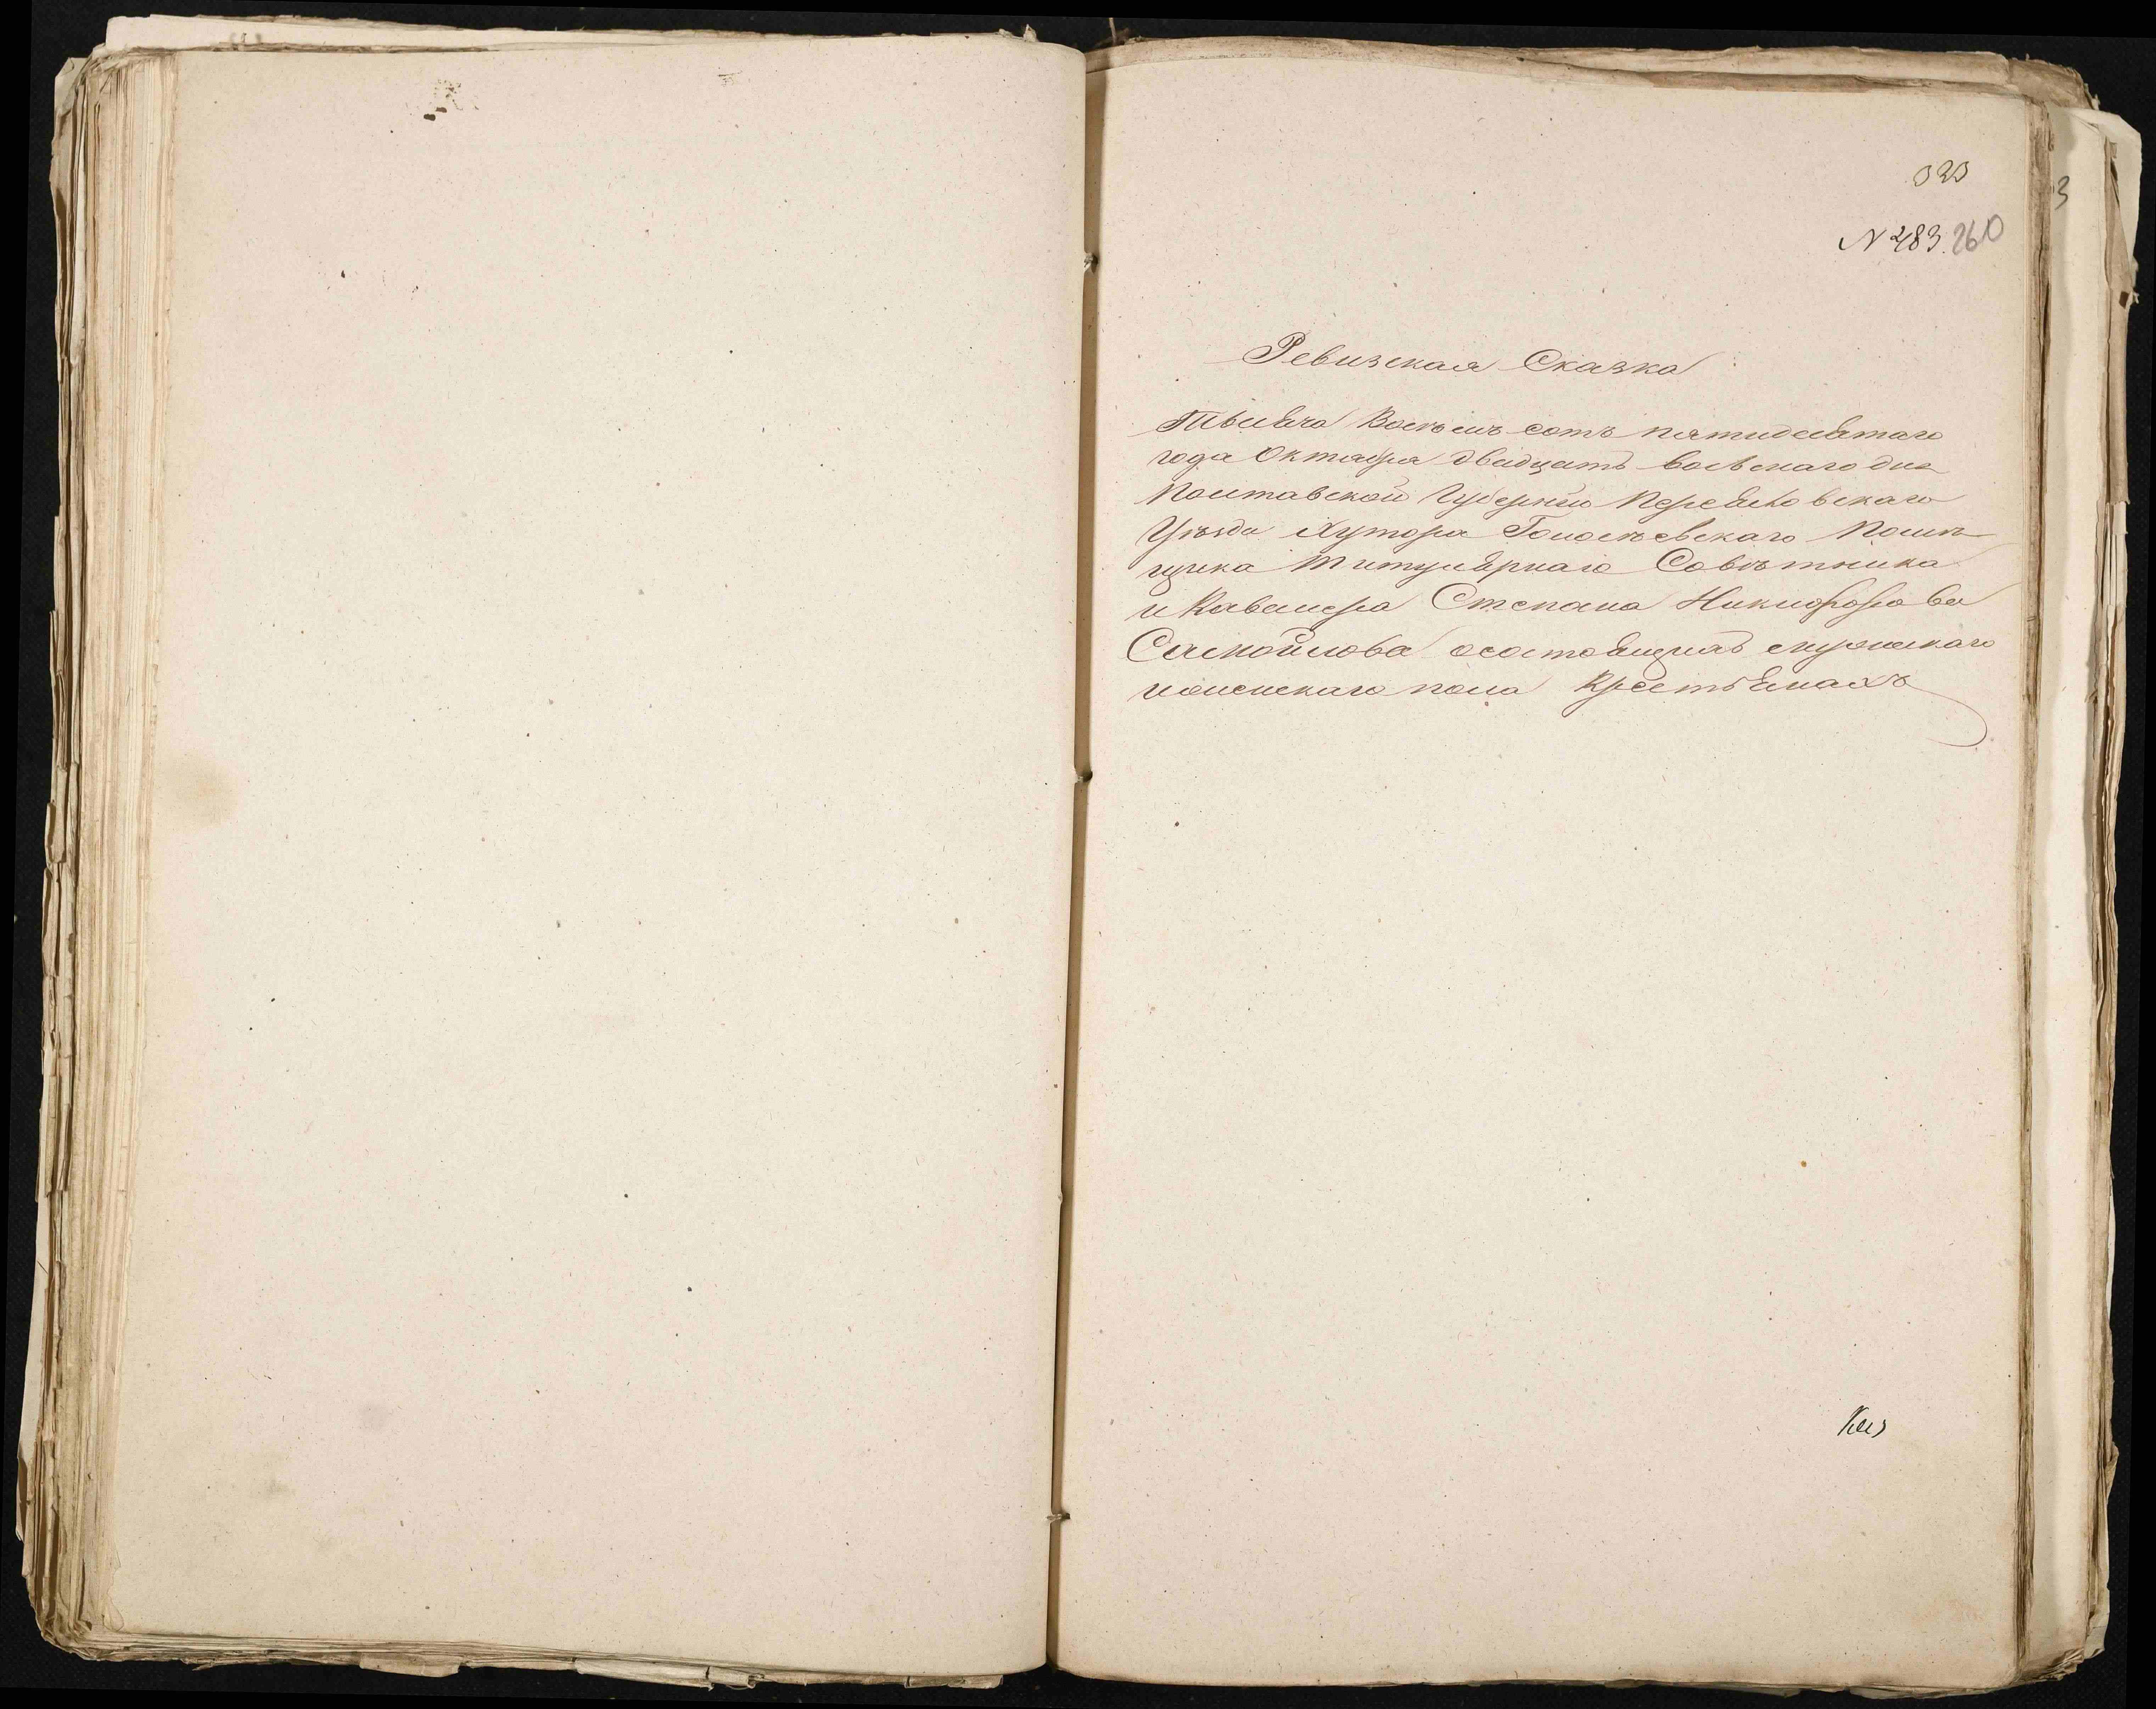 323
№ 483. 260
Ревизская Сказка
Тысяча Восемь сотъ пятидесятаго
года Октября двадцать восьмаго дня
Полтавской Губерніи Переяславскаго
Уѣзда Хутора Помѣ-
щика Титулярнаго Совѣтника
и Кавалера Степана Никифорова
Самойлова осостоящихъ мужескаго
иженскаго пола Крестьянахъ